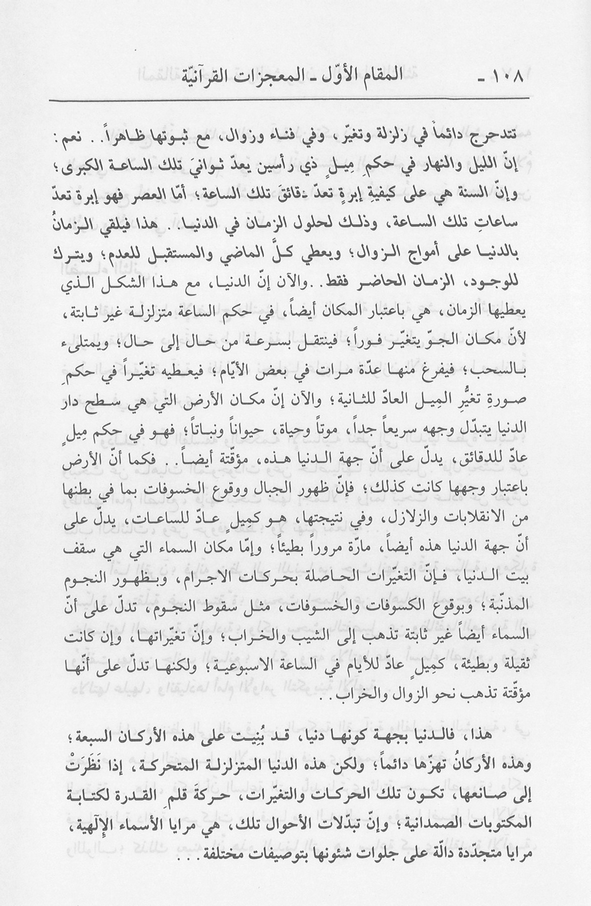 ١٠٨ - المقام الأوّل - المعجزات القرآنيّة
تتدحرج دائماً في زلزلة وتغيّر، وفي فناء وزوال، مع ثبوتها ظاهراً.. نعم:
إنّ الليل والنهار في حكم مِيلٍ ذي رأسين يعدّ ثوانيَ تلك الساعة الكبرى؛
وإنّ السنة هي على كيفيةِ إبرةٍ تعدّ دقائقَ تلك الساعة؛ أمّا العصر فهو إبرة تعدّ
ساعاتِ تلك الساعة، وذلك لحلول الزمان في الدنيا.. هذا فيلقي الزمانُ
بالدنيا على أمواج الزوال؛ ويعطي كلَّ الماضي والمستقبل للعدم؛ ويترك
للوجود، الزمان الحاضر فقط..والآن إنّ الدنيا، مع هذا الشكل الذي
يعطيها الزمان، هي باعتبار المكان أيضاً، في حكم الساعة متزلزلة غير ثابتة،
لأنّ مكان الجوّ يتغيّر فوراً؛ فينتقل بسرعة من حال إلى حال؛ ويمتلىء
بالسحب؛ فيفرغ منها عدّة مرات في بعض الأيّام؛ فيعطيه تغيّراً في حكمِ
صورةِ تغيُّرِ المِيل العادّ للثانية؛ والآن إنّ مكان الأرض التي هي سطح دار
الدنيا يتبدّل وجهه سريعاً جداً، موتاً وحياة، حيواناً ونباتاً؛ فهو في حكم مِيلٍ
عادّ للدقائق، يدلّ على أنّ جهة الدنيا هذه، مؤقّتة أيضاً.. فكما أنّ الأرض
باعتبار وجهها كانت كذلك؛ فإنّ ظهور الجبال ووقوع الخسوفات بما في بطنها
من الانقلابات والزلازل، وفي نتيجتها، هو كمِيلٍ عادّ للساعات، يدلّ على
أنّ جهة الدنيا هذه أيضاً، مارّة مروراً بطيئاً؛ وإمّا مكان السماء التي هي سقف
بيت الدنيا، فإنّ التغيّرات الحاصلة بحركات الاجرام، وبظهور النجوم
المذنّبة؛ وبوقوع الكسوفات والخسوفات، مثل سقوط النجوم، تدلّ على أنّ
السماء أيضاً غير ثابتة تذهب إلى الشيب والخراب؛ وإنّ تغيّراتها، وإن كانت
ثقيلة وبطيئة، كمِيلٍ عادّ للأيام في الساعة الاسبوعية؛ ولكنها تدلّ على أنّها
مؤقّتة تذهب نحو الزوال والخراب..
هذا، فالدنيا بجهة كونها دنيا، قد بُنِيت على هذه الأركان السبعة؛
وهذه الأركانُ تهزّها دائماً؛ ولكن هذه الدنيا المتزلزلة المتحركة، إذا نَظَرَتْ
إلى صانعها، تكون تلك الحركات والتغيّرات، حركةَ قلمِ القدرة لكتابة
المكتوبات الصمدانية؛ وإنّ تبدّلات الأحوال تلك، هي مرايا الأسماء الإِلٓهية،
مرايا متجدّدة دالّة على جلوات شئونها بتوصيفات مختلفة...